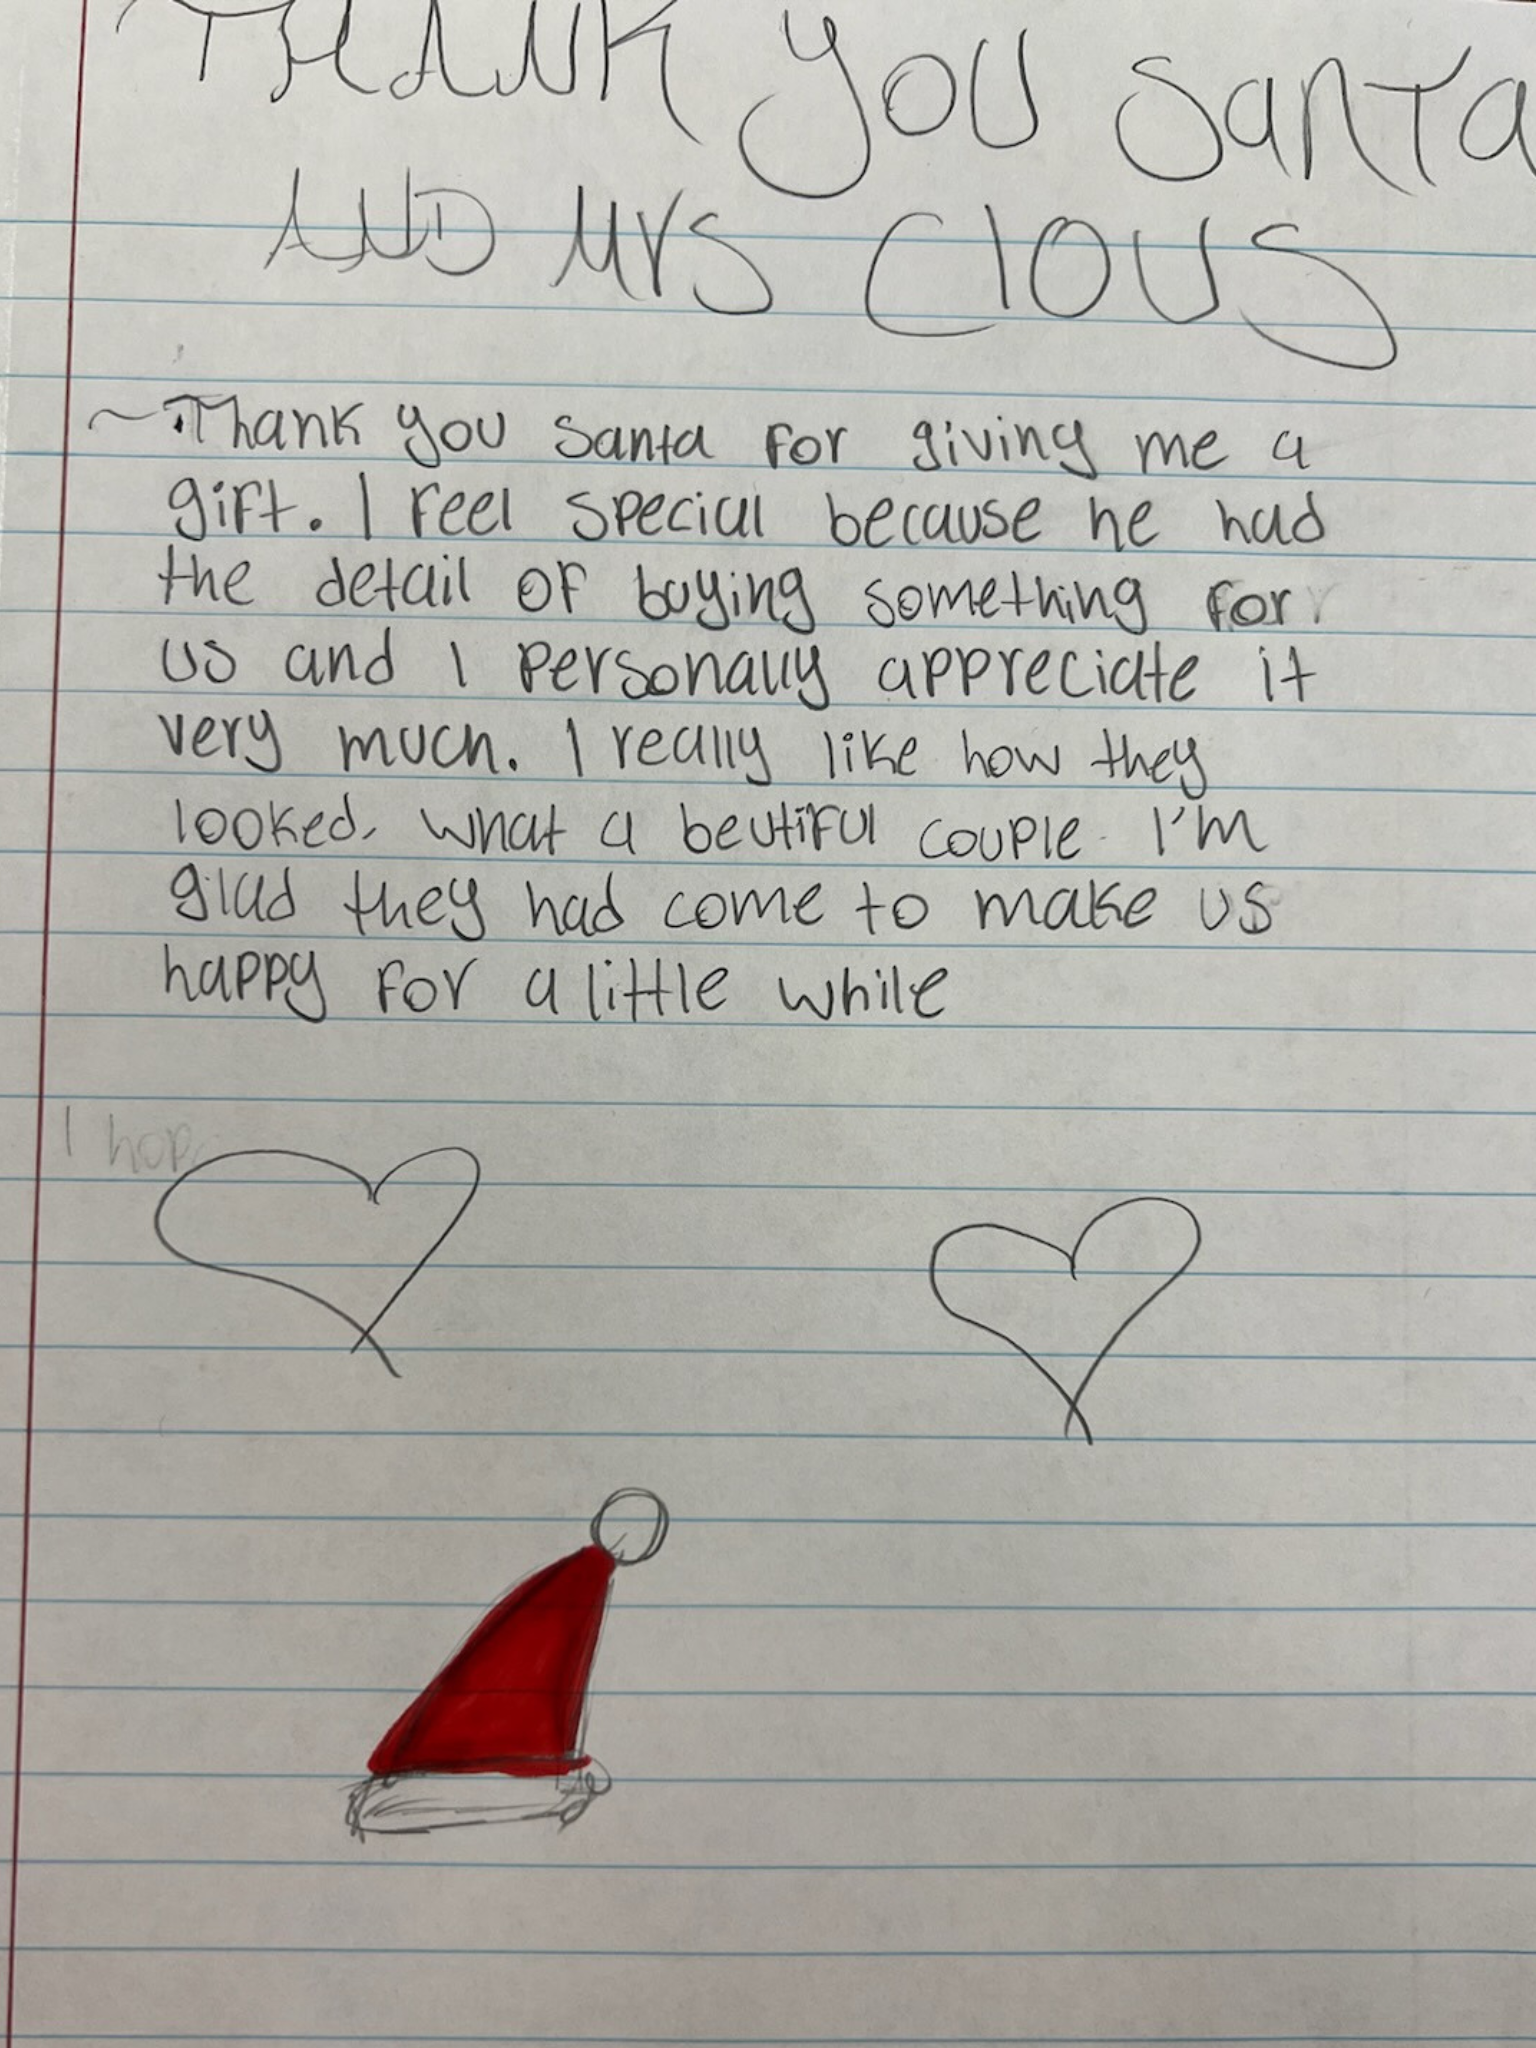 THANK YOU SANTA
AND MRS ClOUS
~Thank you Santa for giving me a
gift. I feel special because he had
the detail of buying something for
us and I personally appreciate it
very much. I really like how they
looked. what a beutiful couple. I'm
glad they had come to make us
happy for a little while
I hop